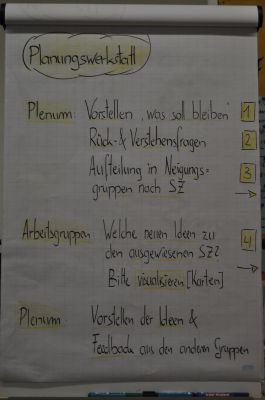 Planungswerkstatt
Plenum: Vorstellen "was soll bleiben" 1
Rück- & Verstehensfragen 2
Aufteilung in Neigungs- 3
gruppen nach SZ →
Arbeitsgruppen: Welche neuen Ideen zu 4
den ausgewiesenen SZ? →
Bitte visualisieren [Karten]
Plenum: Vorstellen der Ideen &
Feedback aus den anderen Gruppen